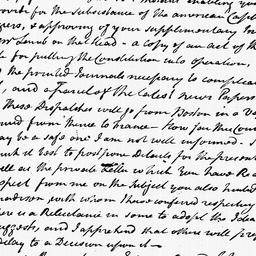 for the Subsistance of the american Capt
& approving of your Supplementary In
on the Head - a copy of an act of the
for putting the Constitution into operation,
the printed Journals necessary to compleat
and a parcel of the latest news Papers
These Dispatches will go from Boston in a
from thence to France - How far the
be a safe one I am not well informed. I
it best to postpone Details for the present
as the private Letter which you have
from me on the Subject you also hinted
with whom I have conferred respecting
is a Reluctance in some to adopt the Idea
suggests, and I apprehend that others will
delay to a Decision upon it -